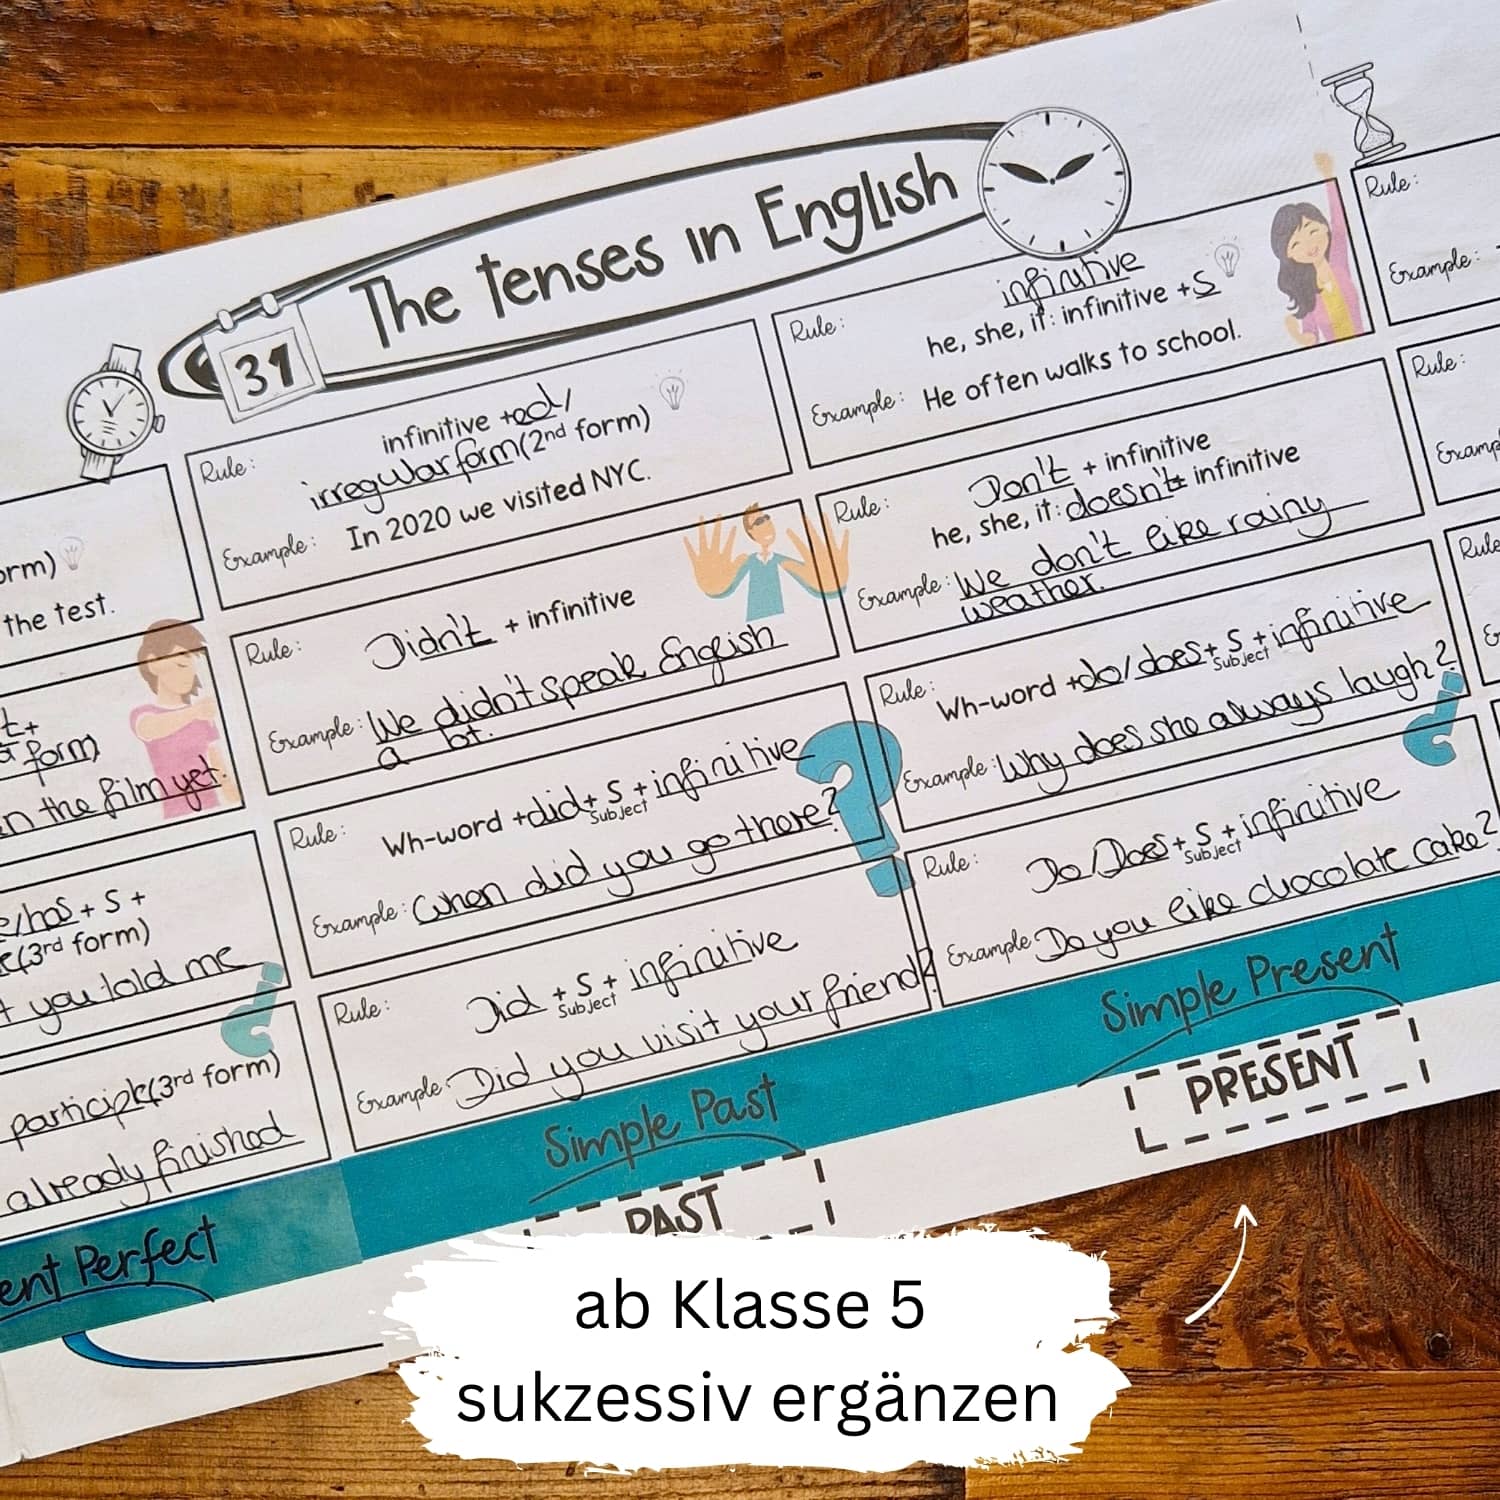 The tenses in English
31
orm)
the test.
t+
form)
n the film yet.
e/has + S +
(3rd form)
t you told me
participle(3rd form)
already finished
ent Perfect
Rule:
infinitive +ed/
irregular form(2nd form)
Example:
In 2020 we visited NYC.
Rule:
Didn't + infinitive
Example:
We didn't speak English
a bit.
Rule:
Wh-word +did+ S + infinitive
Subject
Example:
When did you go there?
Rule:
Did + S + infinitive
Subject
Example:
Did you visit your friend?
Simple Past
PAST
Rule:
infinitive
he, she, it: infinitive +S
Example:
He often walks to school.
Rule:
Don't + infinitive
he, she, it: doesn't+ infinitive
Example:
We don't like rainy
weather.
Rule:
Wh-word +do/does+ S +infinitive
Subject
Example:
Why does she always laugh?
Rule:
Do/Does+ S +infinitive
Subject
Example:
Do you like chocolate cake?
Simple Present
PRESENT
Rule:
Example:
Rule:
Examp
Rule
ab Klasse 5
sukzessiv ergänzen